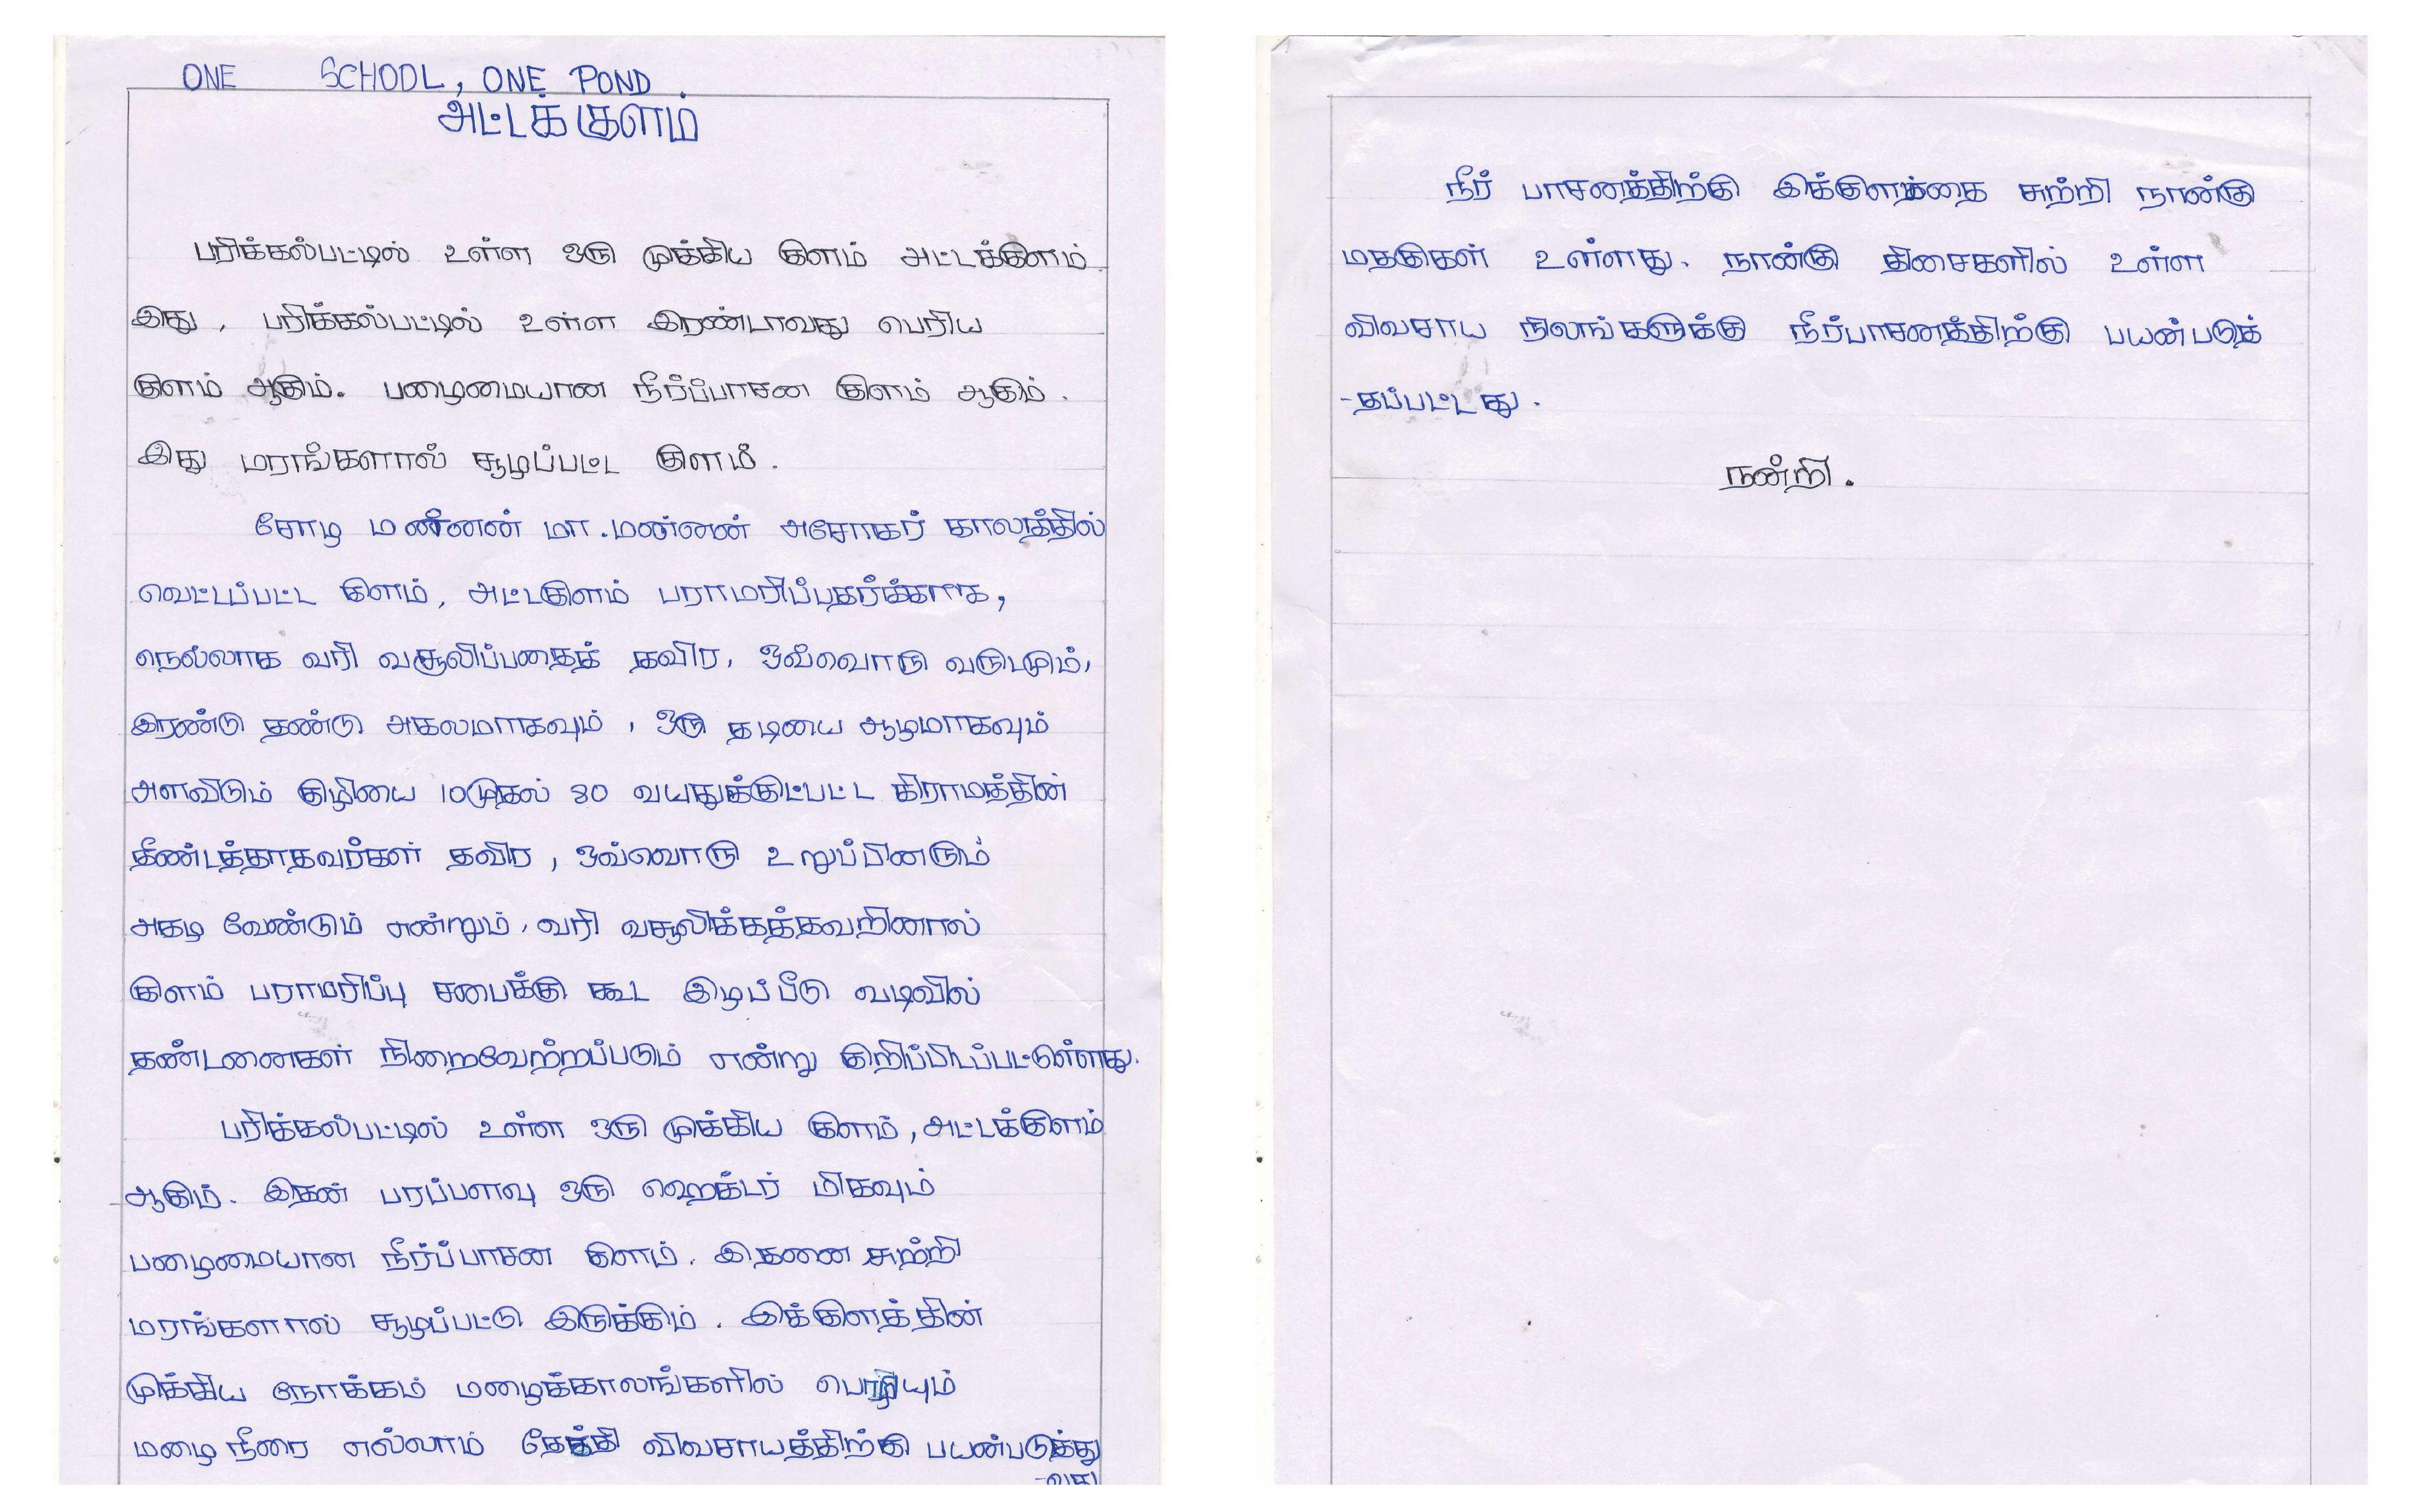 ONE SCHOOL, ONE POND.
அட்டக்குளம்
பரிக்கல்பட்டில் உள்ள ஒரு முக்கிய குளம் அட்டக்குளம்.
இது, பரிக்கல்பட்டில் உள்ள இரண்டாவது பெரிய
குளம் ஆகும். பழைமையான நீர்ப்பாசன குளம் ஆகும்.
இது மரங்களால் சூழப்பட்ட குளம்.
சோழ மன்னன் மா.மன்னன் அசோகர் காலத்தில்
வெட்டப்பட்ட குளம், அட்டகுளம் பராமரிப்பதற்க்காக,
நெல்லாக வரி வசூலிப்பதைத் தவிர, ஒவ்வொரு வருடமும்,
இரண்டு தண்டு அகலமாகவும், ஒரு தடியை ஆழமாகவும்
அளவிடும் குழியை 10முதல் 80 வயதுக்குட்பட்ட கிராமத்தின்
தீண்டத்தாதவர்கள் தவிர, ஒவ்வொரு உறுப்பினரும்
அகழ வேண்டும் என்றும், வரி வசூலிக்கத்தவறினால்
குளம் பராமரிப்பு சபைக்கு கூட இழப்பீடு வடிவில்
தண்டனைகள் நிறைவேற்றப்படும் என்று குறிப்பிடப்பட்டுள்ளது.
பரிக்கல்பட்டில் உள்ள ஒரு முக்கிய குளம், அட்டக்குளம்
ஆகும். இதன் பரப்பளவு ஒரு ஹெக்டர் மிகவும்
பழைமையான நீர்ப்பாசன குளம். இதனை சுற்றி
மரங்களால் சூழப்பட்டு இருக்கும். இக்குளத்தின்
முக்கிய நோக்கம் மழைக்காலங்களில் பொழியும்
மழை நீரை எல்லாம் தேக்கி விவசாயத்திற்கு பயன்படுத்து
-வது
நீர் பாசனத்திற்கு இக்குளத்தை சுற்றி நான்கு
மதகுகள் உள்ளது. நான்கு திசைகளில் உள்ள
விவசாய நிலங்களுக்கு நீர்பாசனத்திற்கு பயன்படுத்
-தப்பட்டது.
நன்றி.